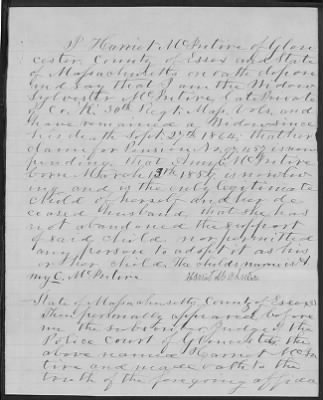 I Harriet McIntire of Glou
cester County of Essex and State
of Massachusetts on oath depose
and say that I am the Widow
Sylvester McIntire, Late Private
Co. K. 30th Regt Mass. Vols, and
have remained a Widow since
his death Sept. 2th 1864, that her
claim for Pension No. is now
pending. that Annie McIntire
born March 19th 1854 is now liv
ing and is the only legitimate
child of herself and her de
ceased husband, that she has
not abandoned the support
of said child nor permitted
any person to adopt it as his
or her child. The childs name is A
my C. McIntire
State of Massachusetts County of Essex SS
Then personally appeared before
me the subscriber Judge of the
Police Court of Gloucester the
above named Harriet McIn
tire and made oath to the
truth of the foregoing affida